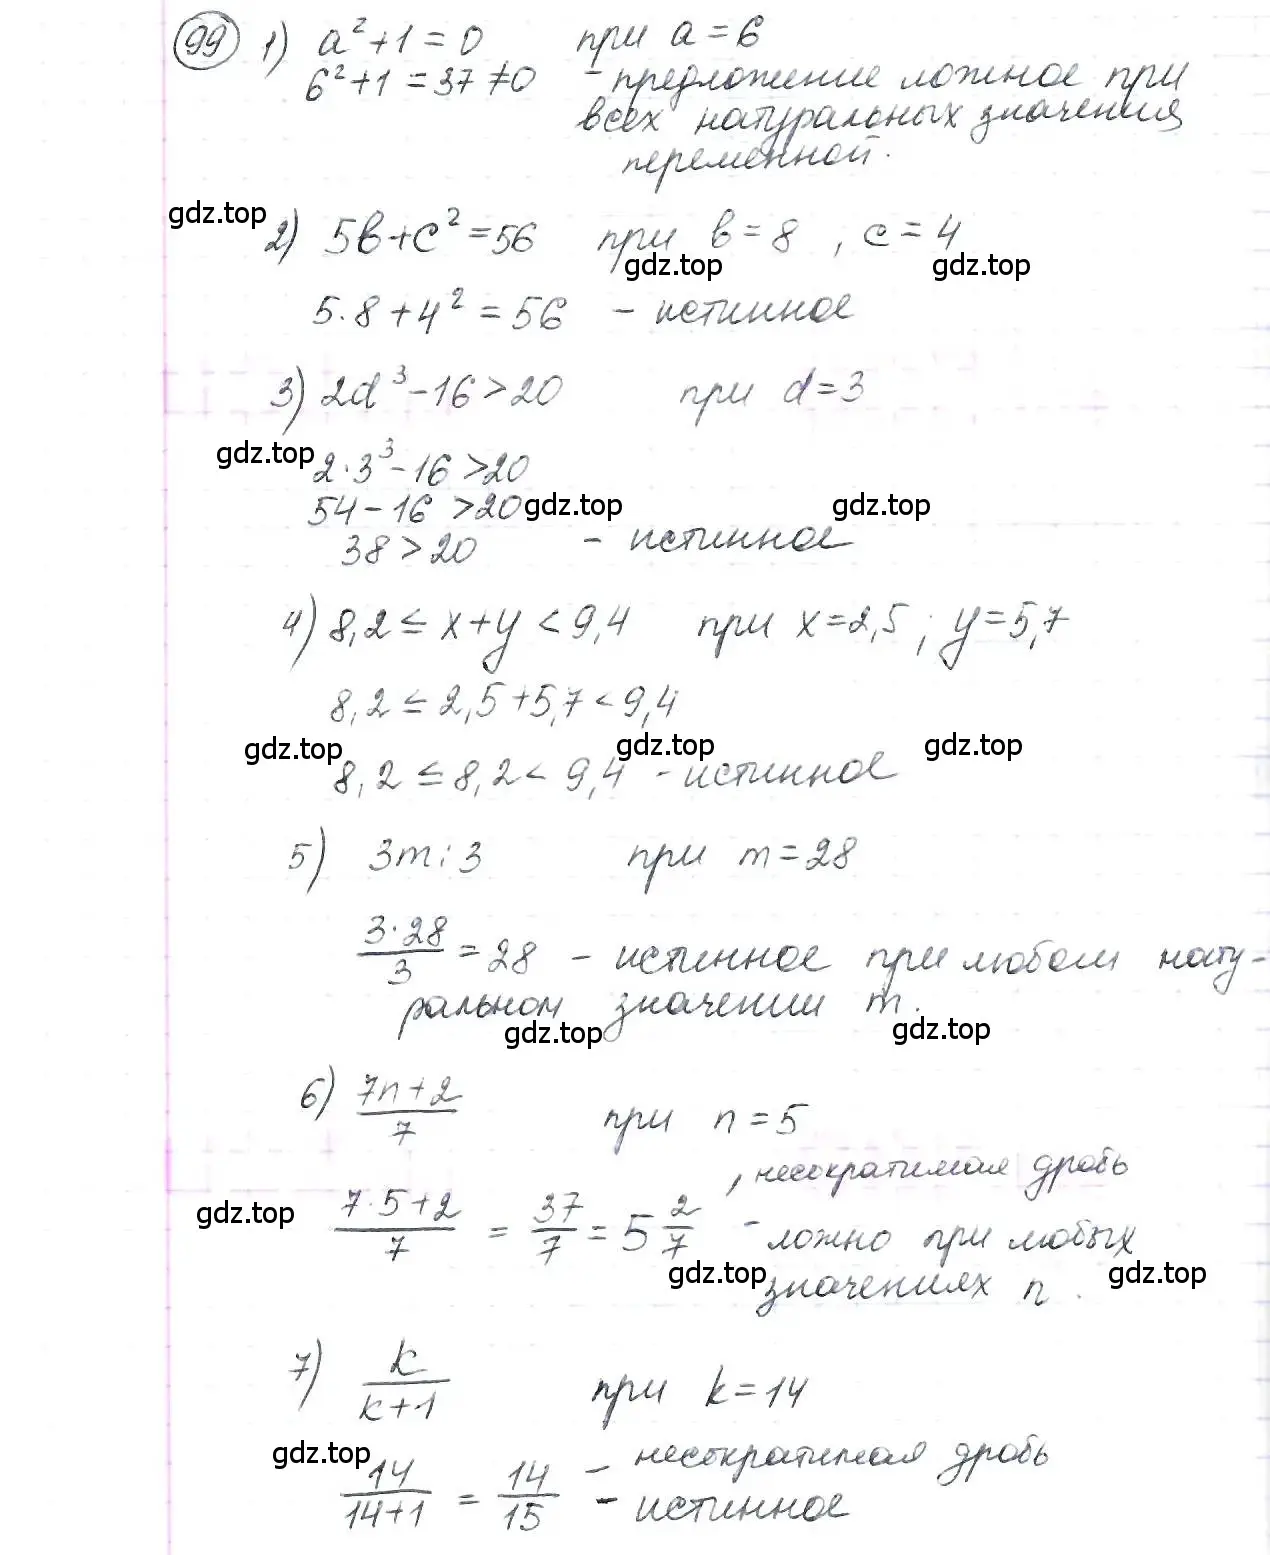 99 1) a²+1=0 при a=6
6²+1=37≠0 - предложение ложное при
всех натуральных значения
переменной.
gdz.top
2) 5b+c²=56 при b=8, c=4
gdz.top gdz.top
5·8+4²=56 - истинное
3) 2d³-16>20 при d=3
gdz.top
2·3³-16>20
54-16>20 gdz.top gdz.top
38>20 - истинное
4) 8,2≤x+y<9,4 при x=2,5; y=5,7
8,2≤2,5+5,7<9,4
gdz.top gdz.top gdz.top
8,2≤8,2<9,4 - истинное
5) 3m:3 при m=28
3·28/3=28 - истинное при любом нату-
ральном значении m.
gdz.top gdz.top
6) 7n+2/7 при n=5
, несократимая дробь
gdz.top 7·5+2/7 = 37/7 = 5 2/7 - ложно при любых
gdz.top значениях n. gdz.top
7) k/k+1 при k=14
gdz.top - несократимая дробь
14/14+1 = 14/15 - истинное